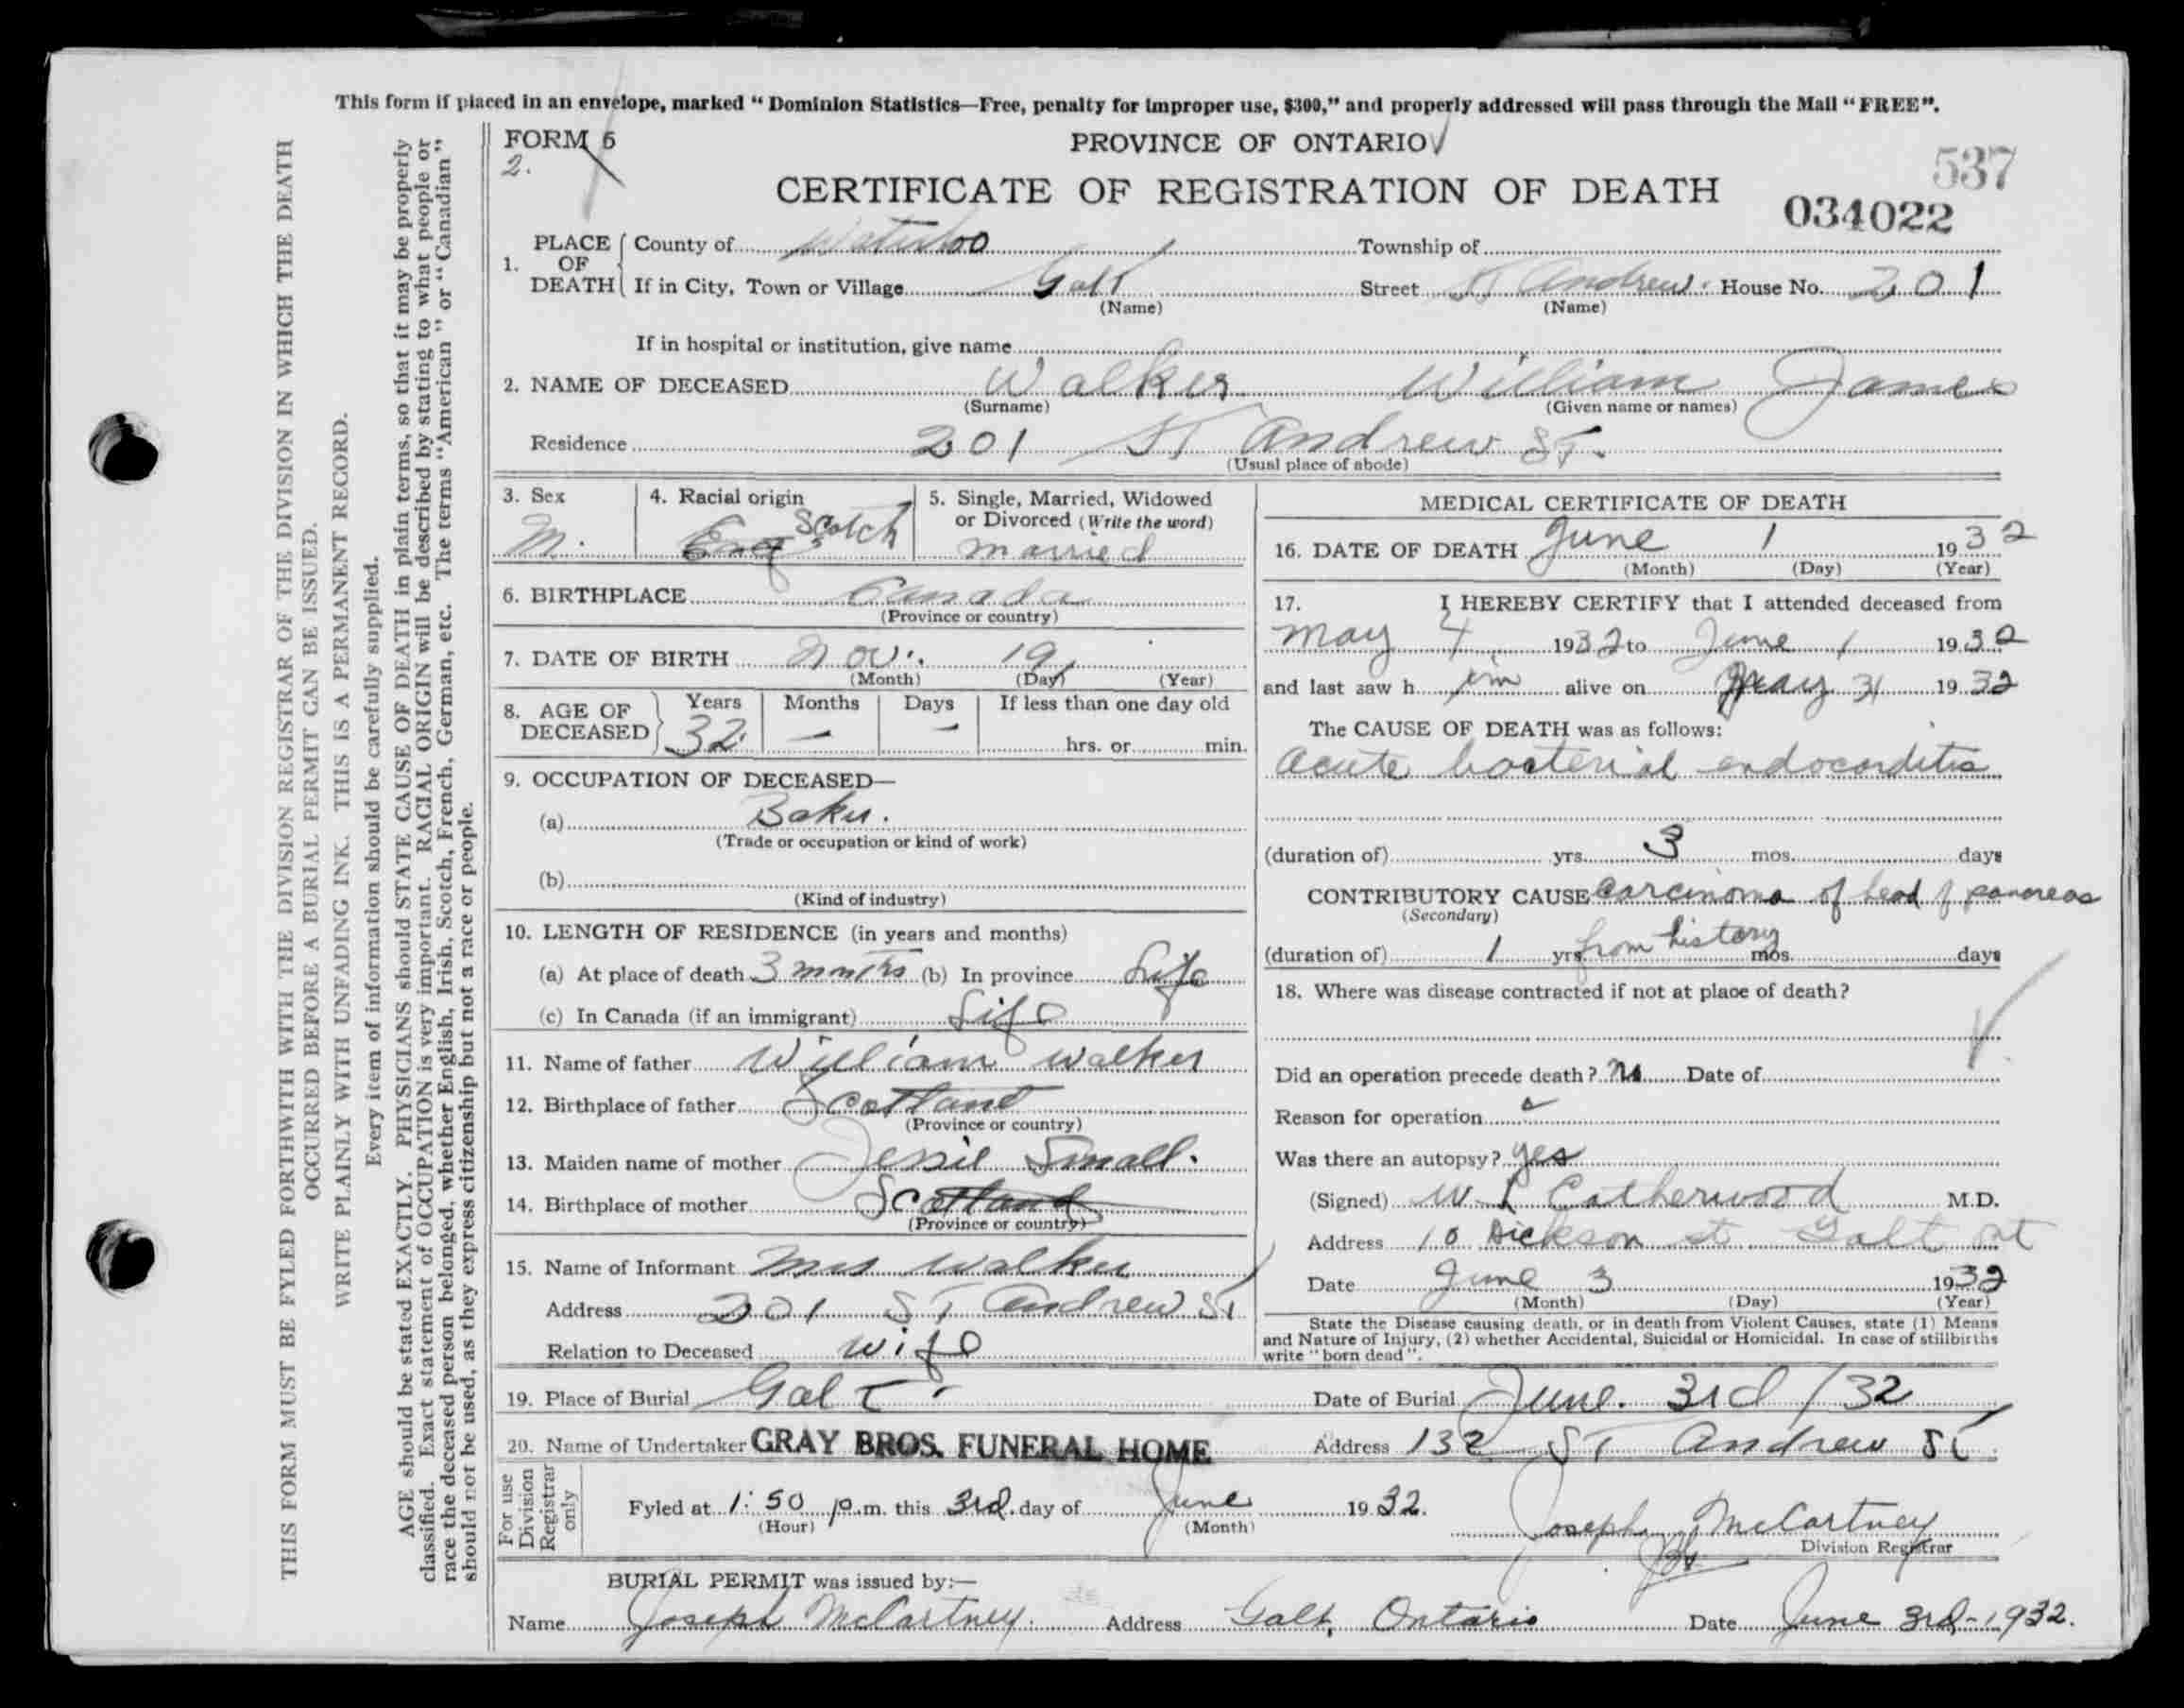 This form if placed in an envelope, marked "Dominion Statistics—Free, penalty for improper use, $300," and properly addressed will pass through the Mail "FREE".
THIS FORM MUST BE FYLED FORTHWITH WITH THE DIVISION REGISTRAR OF THE DIVISION IN WHICH THE DEATH
OCCURRED BEFORE A BURIAL PERMIT CAN BE ISSUED.
WRITE PLAINLY WITH UNFADING INK. THIS IS A PERMANENT RECORD.
Every item of information should be carefully supplied.
AGE should be stated EXACTLY. PHYSICIANS should STATE CAUSE OF DEATH in plain terms, so that it may be properly
classified. Exact statement of OCCUPATION is very important. RACIAL ORIGIN will be described by stating to what people or
race the deceased person belonged, whether English, Irish, Scotch, French, German, etc. The terms "American" or "Canadian"
should not be used, as they express citizenship but not a race or people.
FORM 5
2.
PROVINCE OF ONTARIO
537
CERTIFICATE OF REGISTRATION OF DEATH
034022
1. PLACE OF DEATH County of Waterloo Township of
If in City, Town or Village Galt Street St Andrew House No. 201
(Name) (Name)
If in hospital or institution, give name
2. NAME OF DECEASED Walker William James
(Surname) (Given name or names)
Residence 201 ST Andrew ST.
(Usual place of abode)
3. Sex M.
4. Racial origin Eng Scotch
5. Single, Married, Widowed
or Divorced (Write the word)
married
6. BIRTHPLACE Canada
(Province or country)
7. DATE OF BIRTH Nov. 19
(Month) (Day) (Year)
8. AGE OF DECEASED Years Months Days If less than one day old
32 — — hrs. or min.
9. OCCUPATION OF DECEASED—
(a) Baker.
(Trade or occupation or kind of work)
(b)
(Kind of industry)
10. LENGTH OF RESIDENCE (in years and months)
(a) At place of death 3 months (b) In province Life
(c) In Canada (if an immigrant) Life
11. Name of father William Walker
12. Birthplace of father Scotland
(Province or country)
13. Maiden name of mother Jessie Small.
14. Birthplace of mother Scotland
(Province or country)
15. Name of Informant Mrs Walker
Address 201 ST Andrew ST
Relation to Deceased wife
MEDICAL CERTIFICATE OF DEATH
16. DATE OF DEATH June 1 1932
(Month) (Day) (Year)
17. I HEREBY CERTIFY that I attended deceased from
May 4 1932 to June 1 1932
and last saw him alive on May 31 1932
The CAUSE OF DEATH was as follows:
acute bacterial endocarditis
(duration of) yrs. 3 mos. days
CONTRIBUTORY CAUSE Carcinoma of head of pancreas
(Secondary)
(duration of) 1 yrs. from history mos. days
18. Where was disease contracted if not at place of death?
Did an operation precede death? No Date of
Reason for operation
Was there an autopsy? yes
(Signed) W. L Catherwood M.D.
Address 10 Dickson st Galt Ont
Date June 3 1932
(Month) (Day) (Year)
State the Disease causing death, or in death from Violent Causes, state (1) Means
and Nature of Injury, (2) whether Accidental, Suicidal or Homicidal. In case of stillbirths
write "born dead".
19. Place of Burial Galt Date of Burial June. 3rd /32
20. Name of Undertaker GRAY BROS. FUNERAL HOME Address 132 ST Andrew St
For use Division Registrar only
Fyled at 1:50 p.m. this 3rd day of June 1932.
(Hour) (Month)
Joseph McCartney
Division Registrar
BURIAL PERMIT was issued by:—
Name Joseph McCartney. Address Galt, Ontario Date June 3rd-1932.